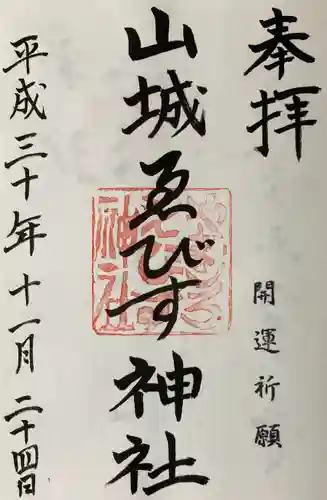 奉拝
開運祈願
山城ゑびす神社
平成三十年十一月二十四日